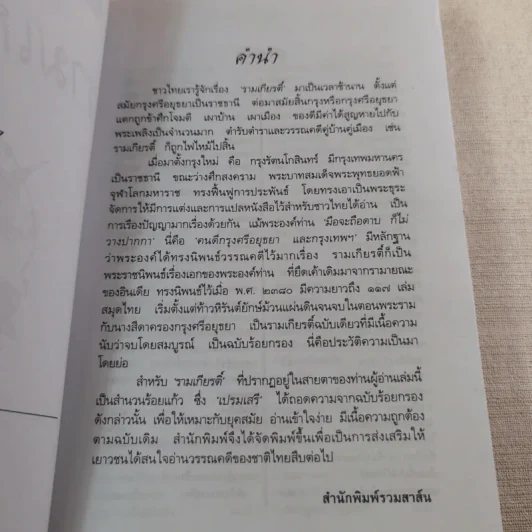 คำนำ
ชาวไทยเรารู้จักเรื่อง 'รามเกียรติ์' มาเป็นเวลาช้านาน ตั้งแต่
สมัยกรุงศรีอยุธยาเป็นราชธานี ต่อมาสมัยสิ้นกรุงหรือกรุงศรีอยุธยา
แตกถูกข้าศึกโจมตี เผาบ้าน เผาเมือง ของดีมีค่าได้สูญหายไปกับ
พระเพลิงเป็นจำนวนมาก ตำรับตำราและวรรณคดีคู่บ้านคู่เมือง เช่น
รามเกียรติ์ ก็ถูกไฟไหม้ไปสิ้น
เมื่อมาตั้งกรุงใหม่ คือ กรุงรัตนโกสินทร์ มีกรุงเทพมหานคร
เป็นราชธานี ขณะว่างศึกสงคราม พระบาทสมเด็จพระพุทธยอดฟ้า
จุฬาโลกมหาราช ทรงฟื้นฟูการประพันธ์ โดยทรงเอาเป็นพระธุระ
จัดการให้มีการแต่งและการแปลหนังสือไว้สำหรับชาวไทยได้อ่าน เป็น
การเรืองปัญญามากเรื่องด้วยกัน แม้พระองค์ท่าน 'มือจะถือดาบ ก็ไม่
วางปากกา' นี่คือ 'คนดีกรุงศรีอยุธยา และกรุงเทพฯ' มีหลักฐาน
ว่าพระองค์ได้ทรงนิพนธ์วรรณคดีไว้มากเรื่อง รามเกียรติ์ก็เป็น
พระราชนิพนธ์เรื่องเอกของพระองค์ท่าน ที่ยึดเค้าเดิมมาจากรามายณะ
ของอินเดีย ทรงนิพนธ์ไว้เมื่อ พ.ศ. ๒๓๔๐ มีความยาวถึง ๑๑๗ เล่ม
สมุดไทย เริ่มตั้งแต่ท้าวหิรันต์ยักษ์ม้วนแผ่นดินจนจบในตอนพระราม
กับนางสีดาครองกรุงศรีอยุธยา เป็นรามเกียรติ์ฉบับเดียวที่มีเนื้อความ
นับว่าจบโดยสมบูรณ์ เป็นฉบับร้อยกรอง นี่คือประวัติความเป็นมา
โดยย่อ
สำหรับ 'รามเกียรติ์' ที่ปรากฏอยู่ในสายตาของท่านผู้อ่านเล่มนี้
เป็นสำนวนร้อยแก้ว ซึ่ง 'เปรมเสรี' ได้ถอดความจากฉบับร้อยกรอง
ดังกล่าวนั้น เพื่อให้เหมาะกับยุคสมัย อ่านเข้าใจง่าย มีเนื้อความถูกต้อง
ตามฉบับเดิม สำนักพิมพ์จึงได้จัดพิมพ์ขึ้นเพื่อเป็นการส่งเสริมให้
เยาวชนได้สนใจอ่านวรรณคดีของชาติไทยสืบต่อไป
สำนักพิมพ์รวมสาส์น